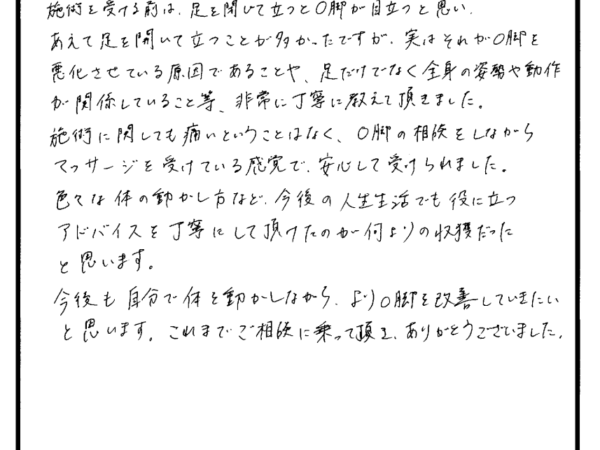 施術を受ける前は、足を閉じて立つとO脚が目立つと思い、
あえて足を開いて立つことが多かったですが、実はそれがO脚を
悪化させている原因であることや、足だけでなく全身の姿勢や動作
が関係していること等、非常に丁寧に教えて頂きました。
施術に関しても痛いということはなく、O脚の相談をしながら
マッサージを受けている感覚で、安心して受けられました。
色々な体の動かし方など、今後の人生生活でも役に立つ
アドバイスを丁寧にして頂けたのが何よりの収獲だった
と思います。
今後も自分で体を動かしながら、よりO脚を改善していきたい
と思います。これまでご相談に乗って頂き、ありがとうございました。